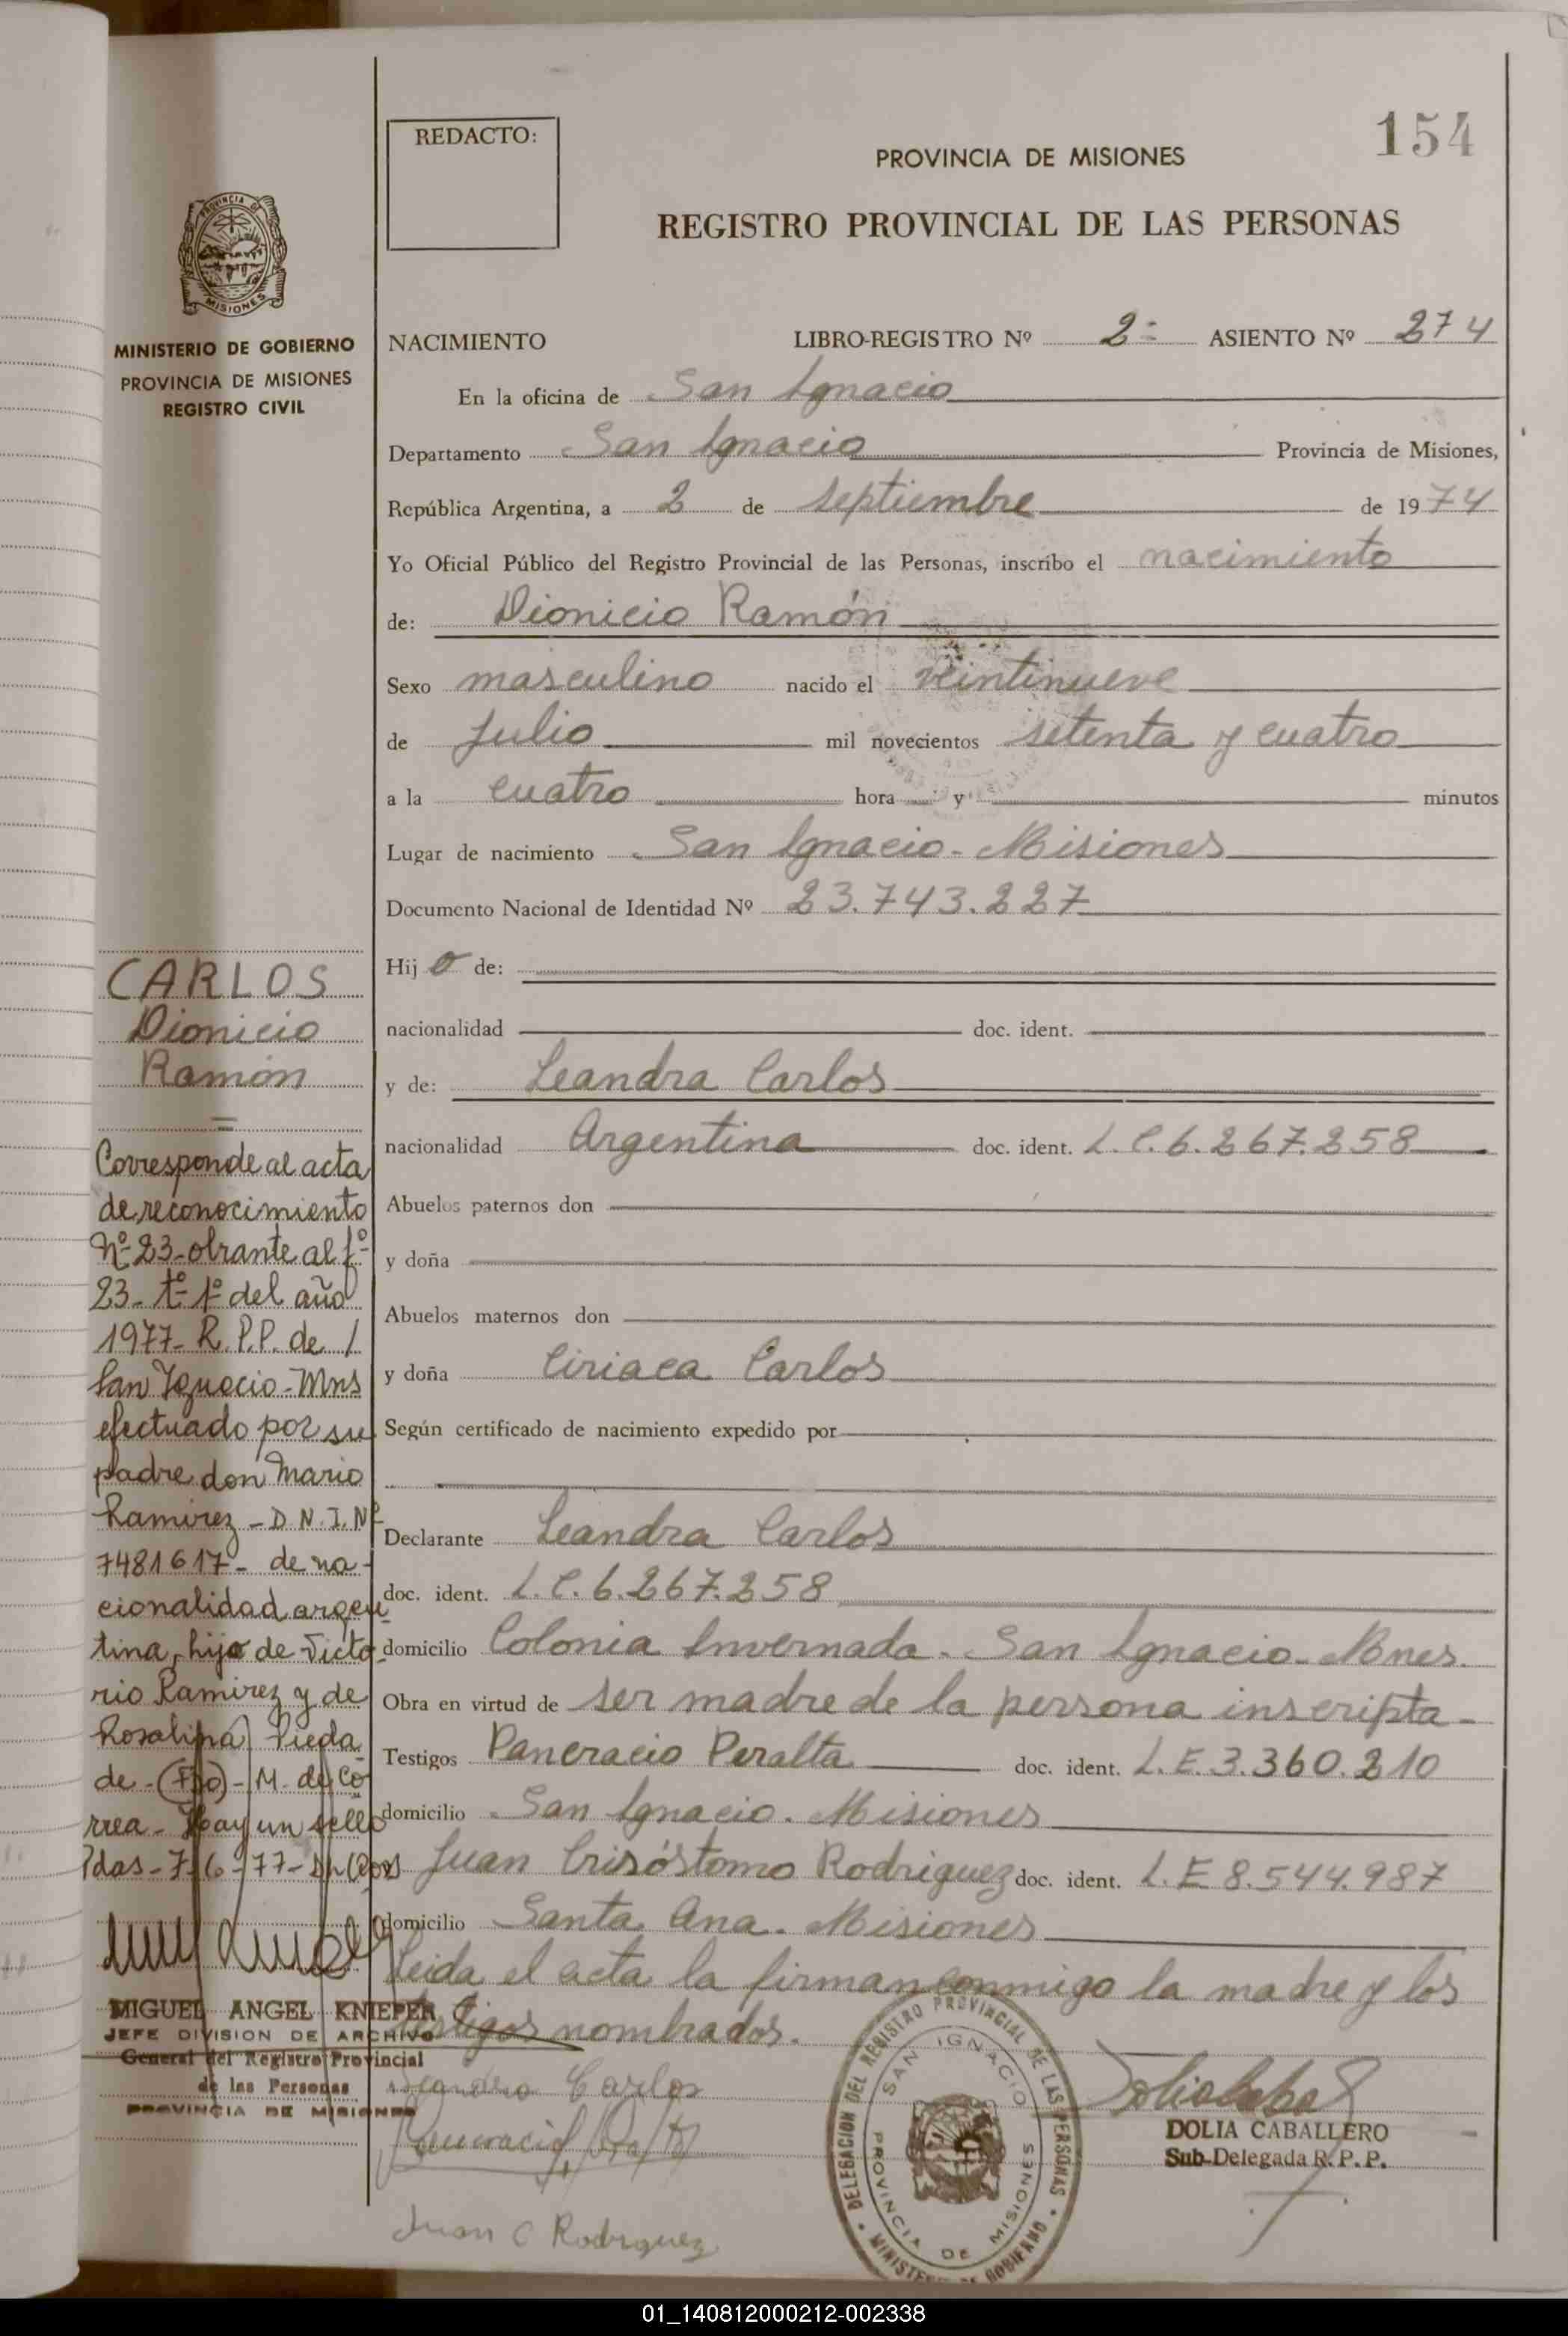 154
REDACTO:
PROVINCIA DE MISIONES
REGISTRO PROVINCIAL DE LAS PERSONAS
PROVINCIA DE
MISIONES
MINISTERIO DE GOBIERNO
PROVINCIA DE MISIONES
REGISTRO CIVIL
NACIMIENTO LIBRO-REGISTRO Nº 2º ASIENTO Nº 274
En la oficina de San Ignacio
Departamento San Ignacio Provincia de Misiones,
República Argentina, a 2 de septiembre de 1974
Yo Oficial Público del Registro Provincial de las Personas, inscribo el nacimiento
de: Dionicio Ramón
Sexo masculino nacido el veintinueve
de julio mil novecientos setenta y cuatro
a la cuatro hora y minutos
Lugar de nacimiento San Ignacio - Misiones
Documento Nacional de Identidad Nº 23.743.227
Hijo de:
nacionalidad doc. ident.
y de: Leandra Carlos
nacionalidad Argentina doc. ident. L.C. 6.267.258
Abuelos paternos don
y doña
Abuelos maternos don
y doña Ciriaca Carlos
Según certificado de nacimiento expedido por
Declarante Leandra Carlos
doc. ident. L.C. 6.267.258
domicilio Colonia Invernada - San Ignacio - Mnes.
Obra en virtud de ser madre de la persona inscripta -
Testigos Pancracio Peralta doc. ident. L.E. 3.360.210
domicilio San Ignacio - Misiones
Juan Crisóstomo Rodriguez doc. ident. L.E 8.544.987
domicilio Santa Ana - Misiones
Leida el acta la firman conmigo la madre y los
testigos nombrados.
Leandra Carlos
Juan C Rodriguez
DOLIA CABALLERO
Sub-Delegada R.P.P.
DELEGACION DEL REGISTRO PROVINCIAL DE LAS PERSONAS
MINISTERIO DE GOBIERNO
SAN IGNACIO
PROVINCIA DE MISIONES
CARLOS
Dionicio
Ramón
Corresponde al acta
de reconocimiento
Nº 23 - obrante al fº
23 - tº 1º del año
1977 - R.P.P. de /
San Ignacio - Mns
efectuado por su
padre don Mario
Ramirez - D.N.I. Nº
7481617 - de na-
cionalidad argen
tina, hijo de Victo
rio Ramirez y de
Rosalina Pieda
de - (Fdo) - M. de Co
rrea - Hay un sello
Pdas - 7-6-77
MIGUEL ANGEL KNIEPER
JEFE DIVISION DE ARCHIVO
General del Registro Provincial
de las Personas
PROVINCIA DE MISIONES
01_140812000212-002338